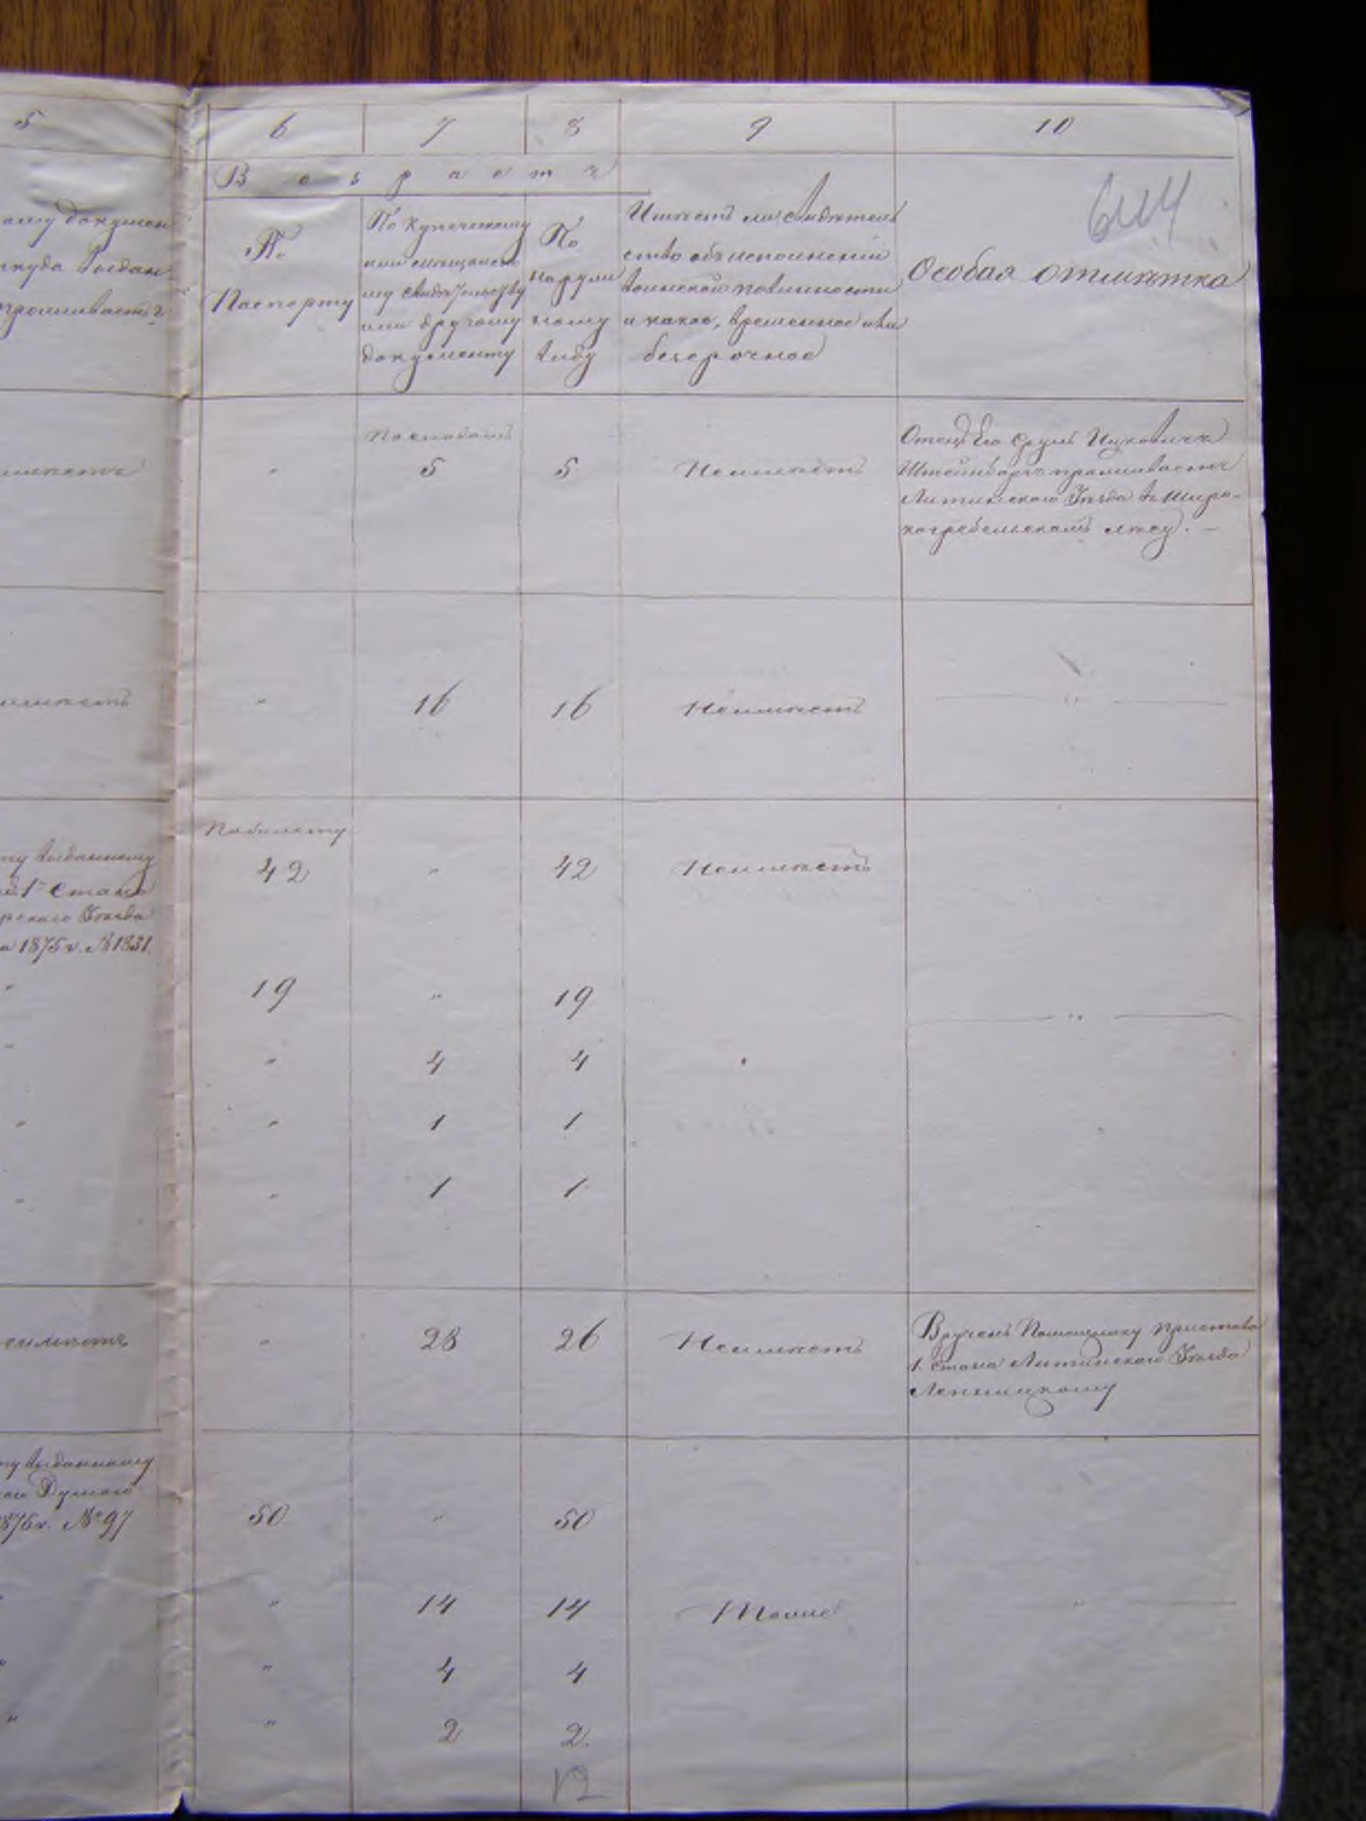 5 6 7 8 9 10
Возрастъ
614
ому докумен
ткуда выдан
проживаетъ?
По
Паспорту
По купеческому
или мещанско
му свидѣтельству
или другому
документу
По
наружн
ному
виду
Имѣетъ ли свидѣтель
ство объ исполненіи
воинской повинности
и какое, временное или
безсрочное
Особая отмѣтка
имѣетъ
"
5
5
Неимѣетъ
Отецъ его Сруль Ицковичъ
Штейнбаргъ проживаетъ
Литинскаго Уѣзда въ Широ-
когребельскомъ лѣсу. —
имѣетъ
"
16
16
Неимѣетъ
"
ту выданному
1го Стана
рскаго Уѣзда
а 1875 г. № 1831.
По билету
42
"
42
Неимѣетъ
" 19 " 19 "
" " 4 4
" " 1 1
" " 1 1
еимѣетъ
"
28
26
Неимѣетъ
Врученъ Помощнику Пристава
1. Стана Литинскаго Уѣзда
ту выданному
кой Думою
1875 г. № 97
50
"
50
" " 14 14 Тоже "
" " 4 4
" " 2 2.
12